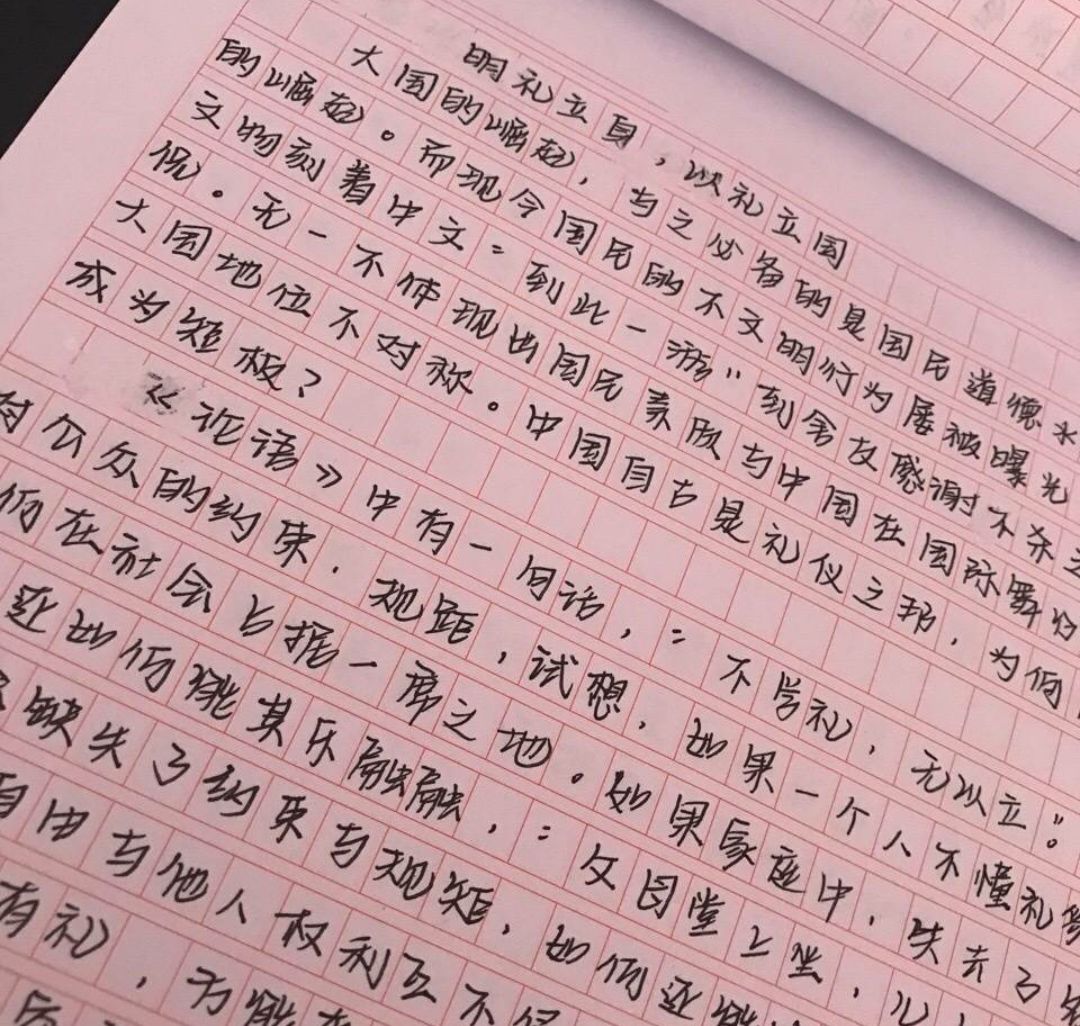 明礼立身，以礼立国
大国的崛起，与之必备的是国民道德水
的崛起。而现今国民的不文明行为屡被曝光
文物刻着中文“到此一游”到舍友感谢不杀之
况。无一不体现出国民素质与中国在国际舞台
大国地位不对称。中国自古是礼仪之邦，为何
成为短板？
《论语》中有一句话，“不学礼，无以立”。
对公众的约束．规距，试想，如果一个人不懂礼
何在社会占据一席之地。如果家庭中，失去了
还如何能其乐融融，“父母堂上坐，儿
缺失了约束与规矩，如何还能
自由与他人权利互不
有礼，方能